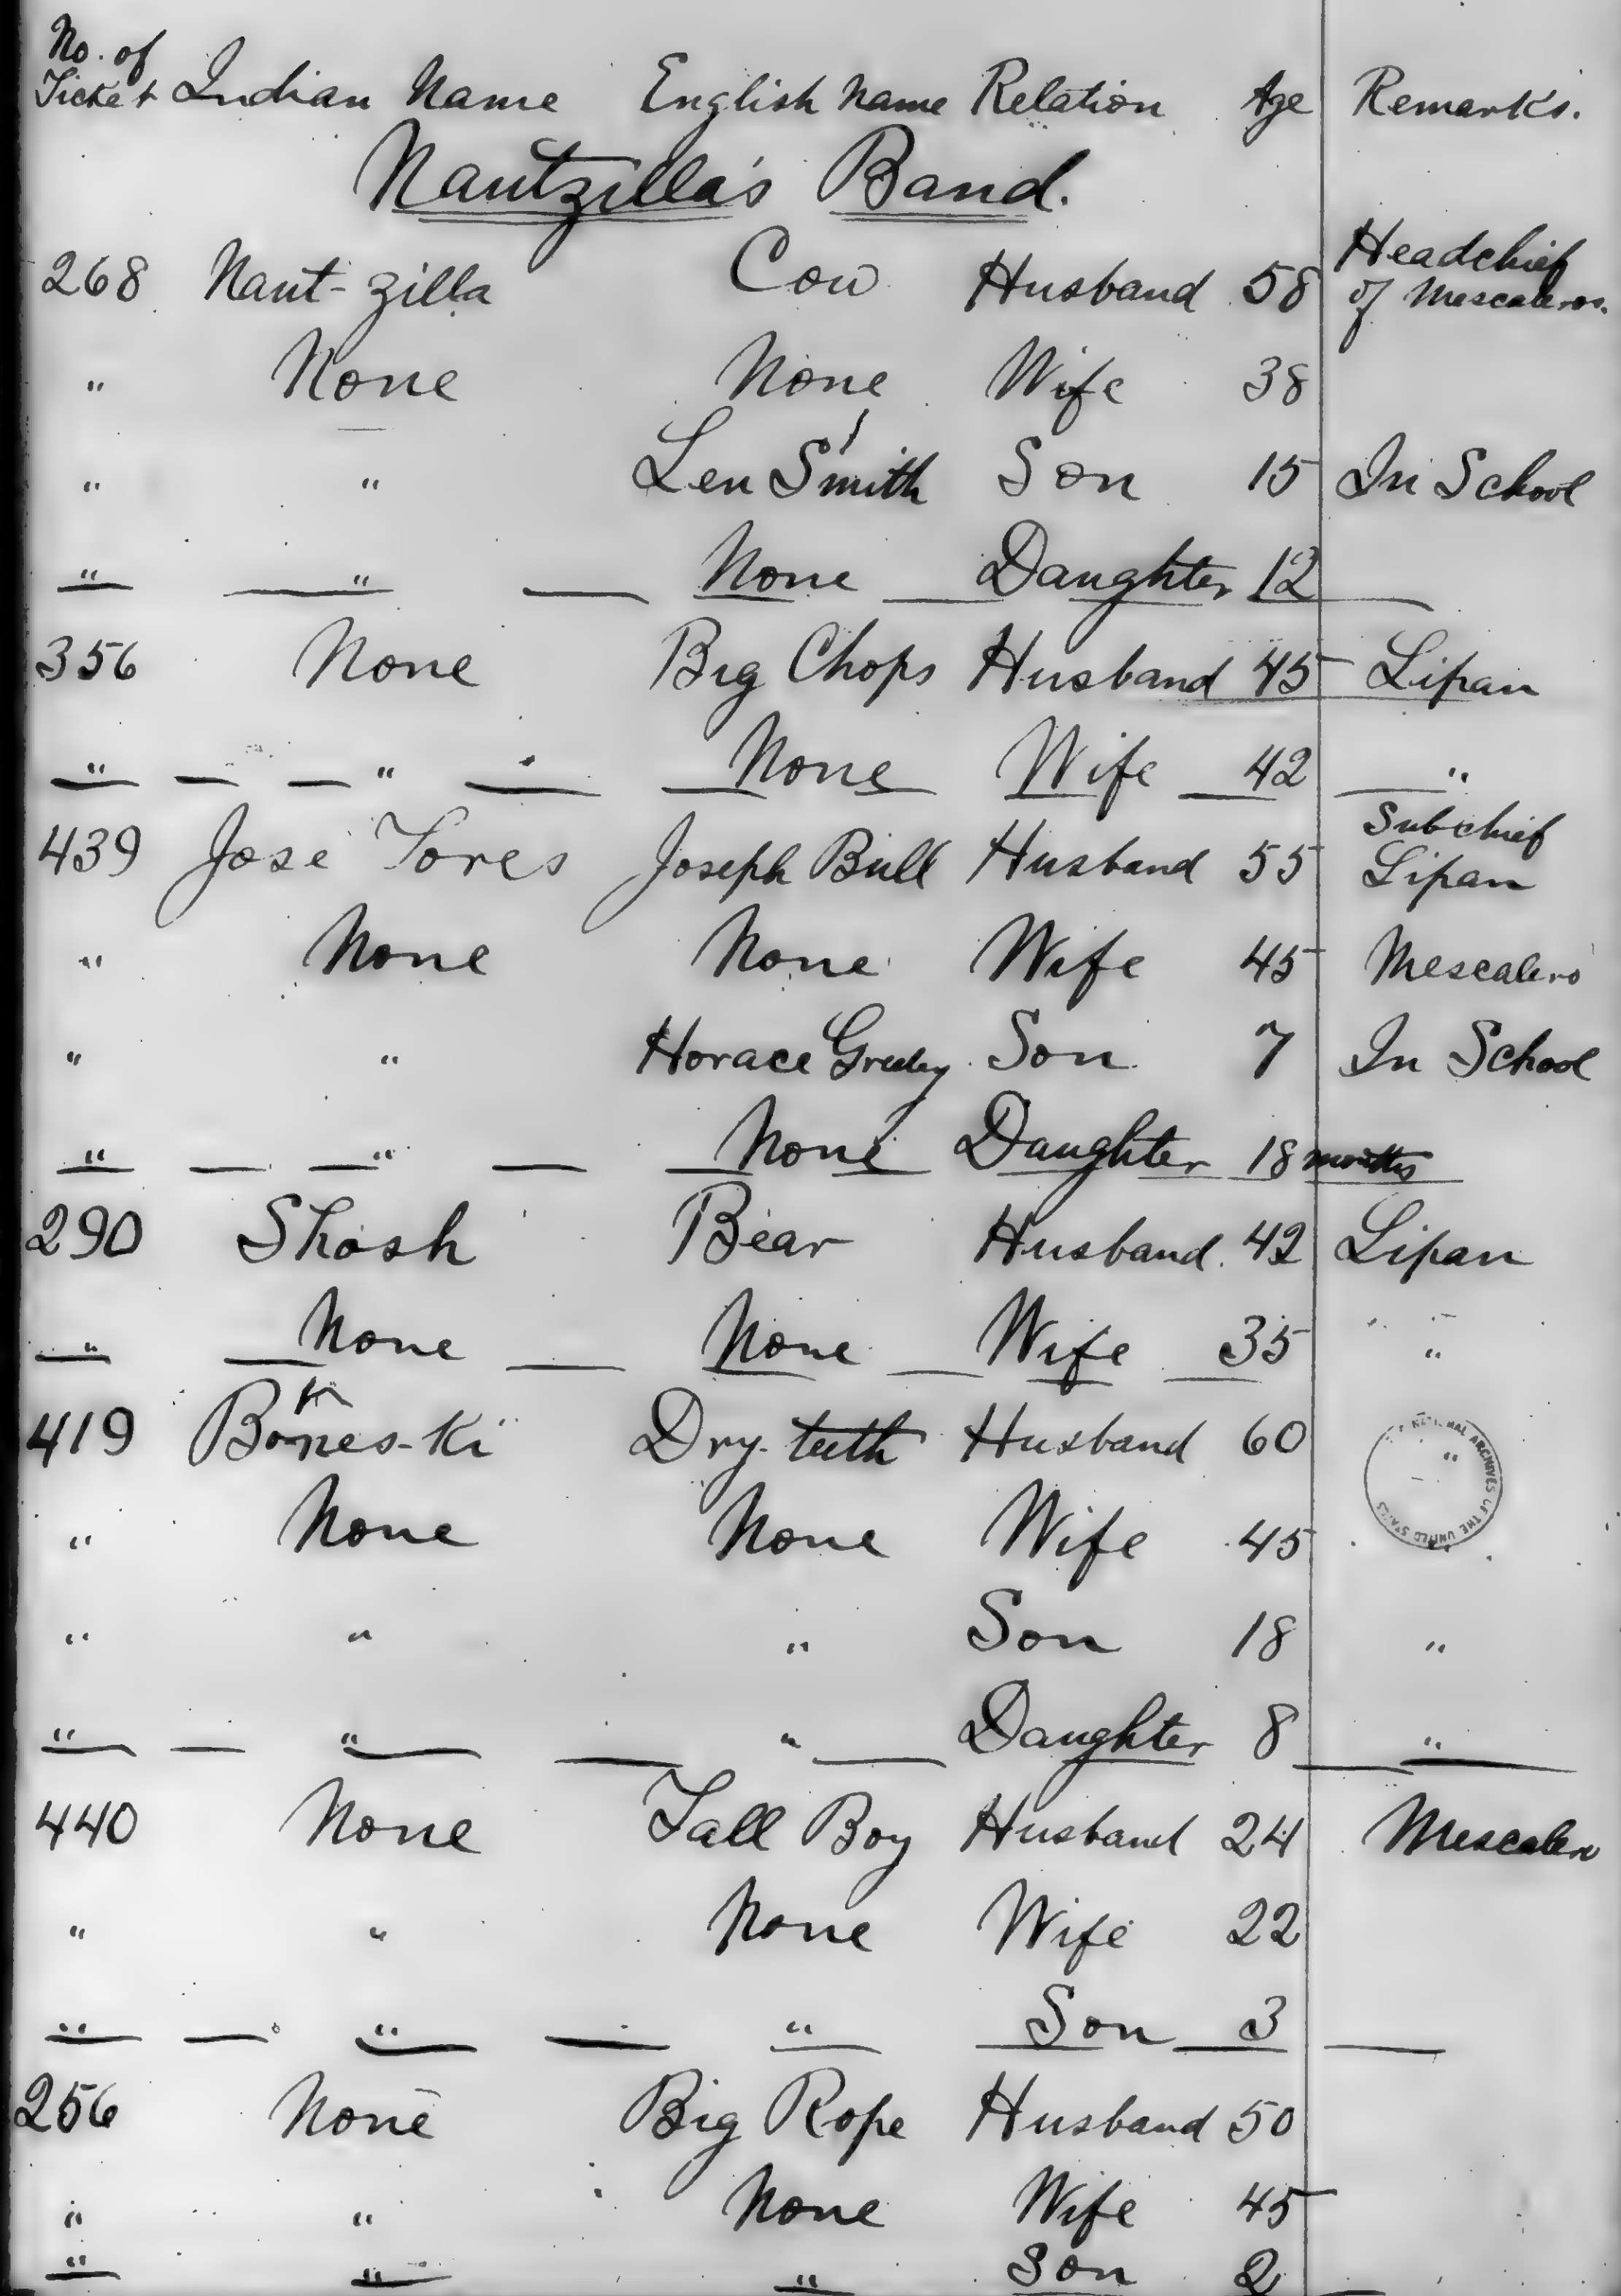 No. of
Ticket Indian Name English Name Relation Age Remarks.
Nautzilla's Band.
268 Naut-zilla Cow Husband 58 Headchief of Mescaleros.
" None None Wife 38
" " Len Smith Son 15 In School
" " None Daughter 12
356 None Big Chops Husband 45 Lipan
" " None Wife 42 "
439 Jose Tores Joseph Bull Husband 55 Subchief Lipan
" None None Wife 45 Mescalero
" " Horace Greeley Son 7 In School
" " None Daughter 18 months
290 Shosh Bear Husband 42 Lipan
" None None Wife 35 "
419 Bones-Ki Dry-teeth Husband 60 "
THE NATIONAL ARCHIVES OF THE UNITED STATES
" None None Wife 45
" " " Son 18 "
" " " Daughter 8 "
440 None Tall Boy Husband 24 Mescalero
" " None Wife 22
" " " Son 3
256 None Big Rope Husband 50
" " None Wife 45
" " " Son 2